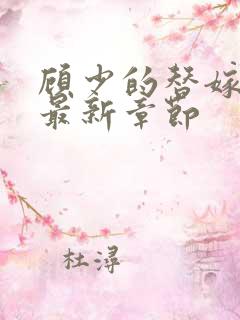 顾少的替嫁
最新章节
杜浔